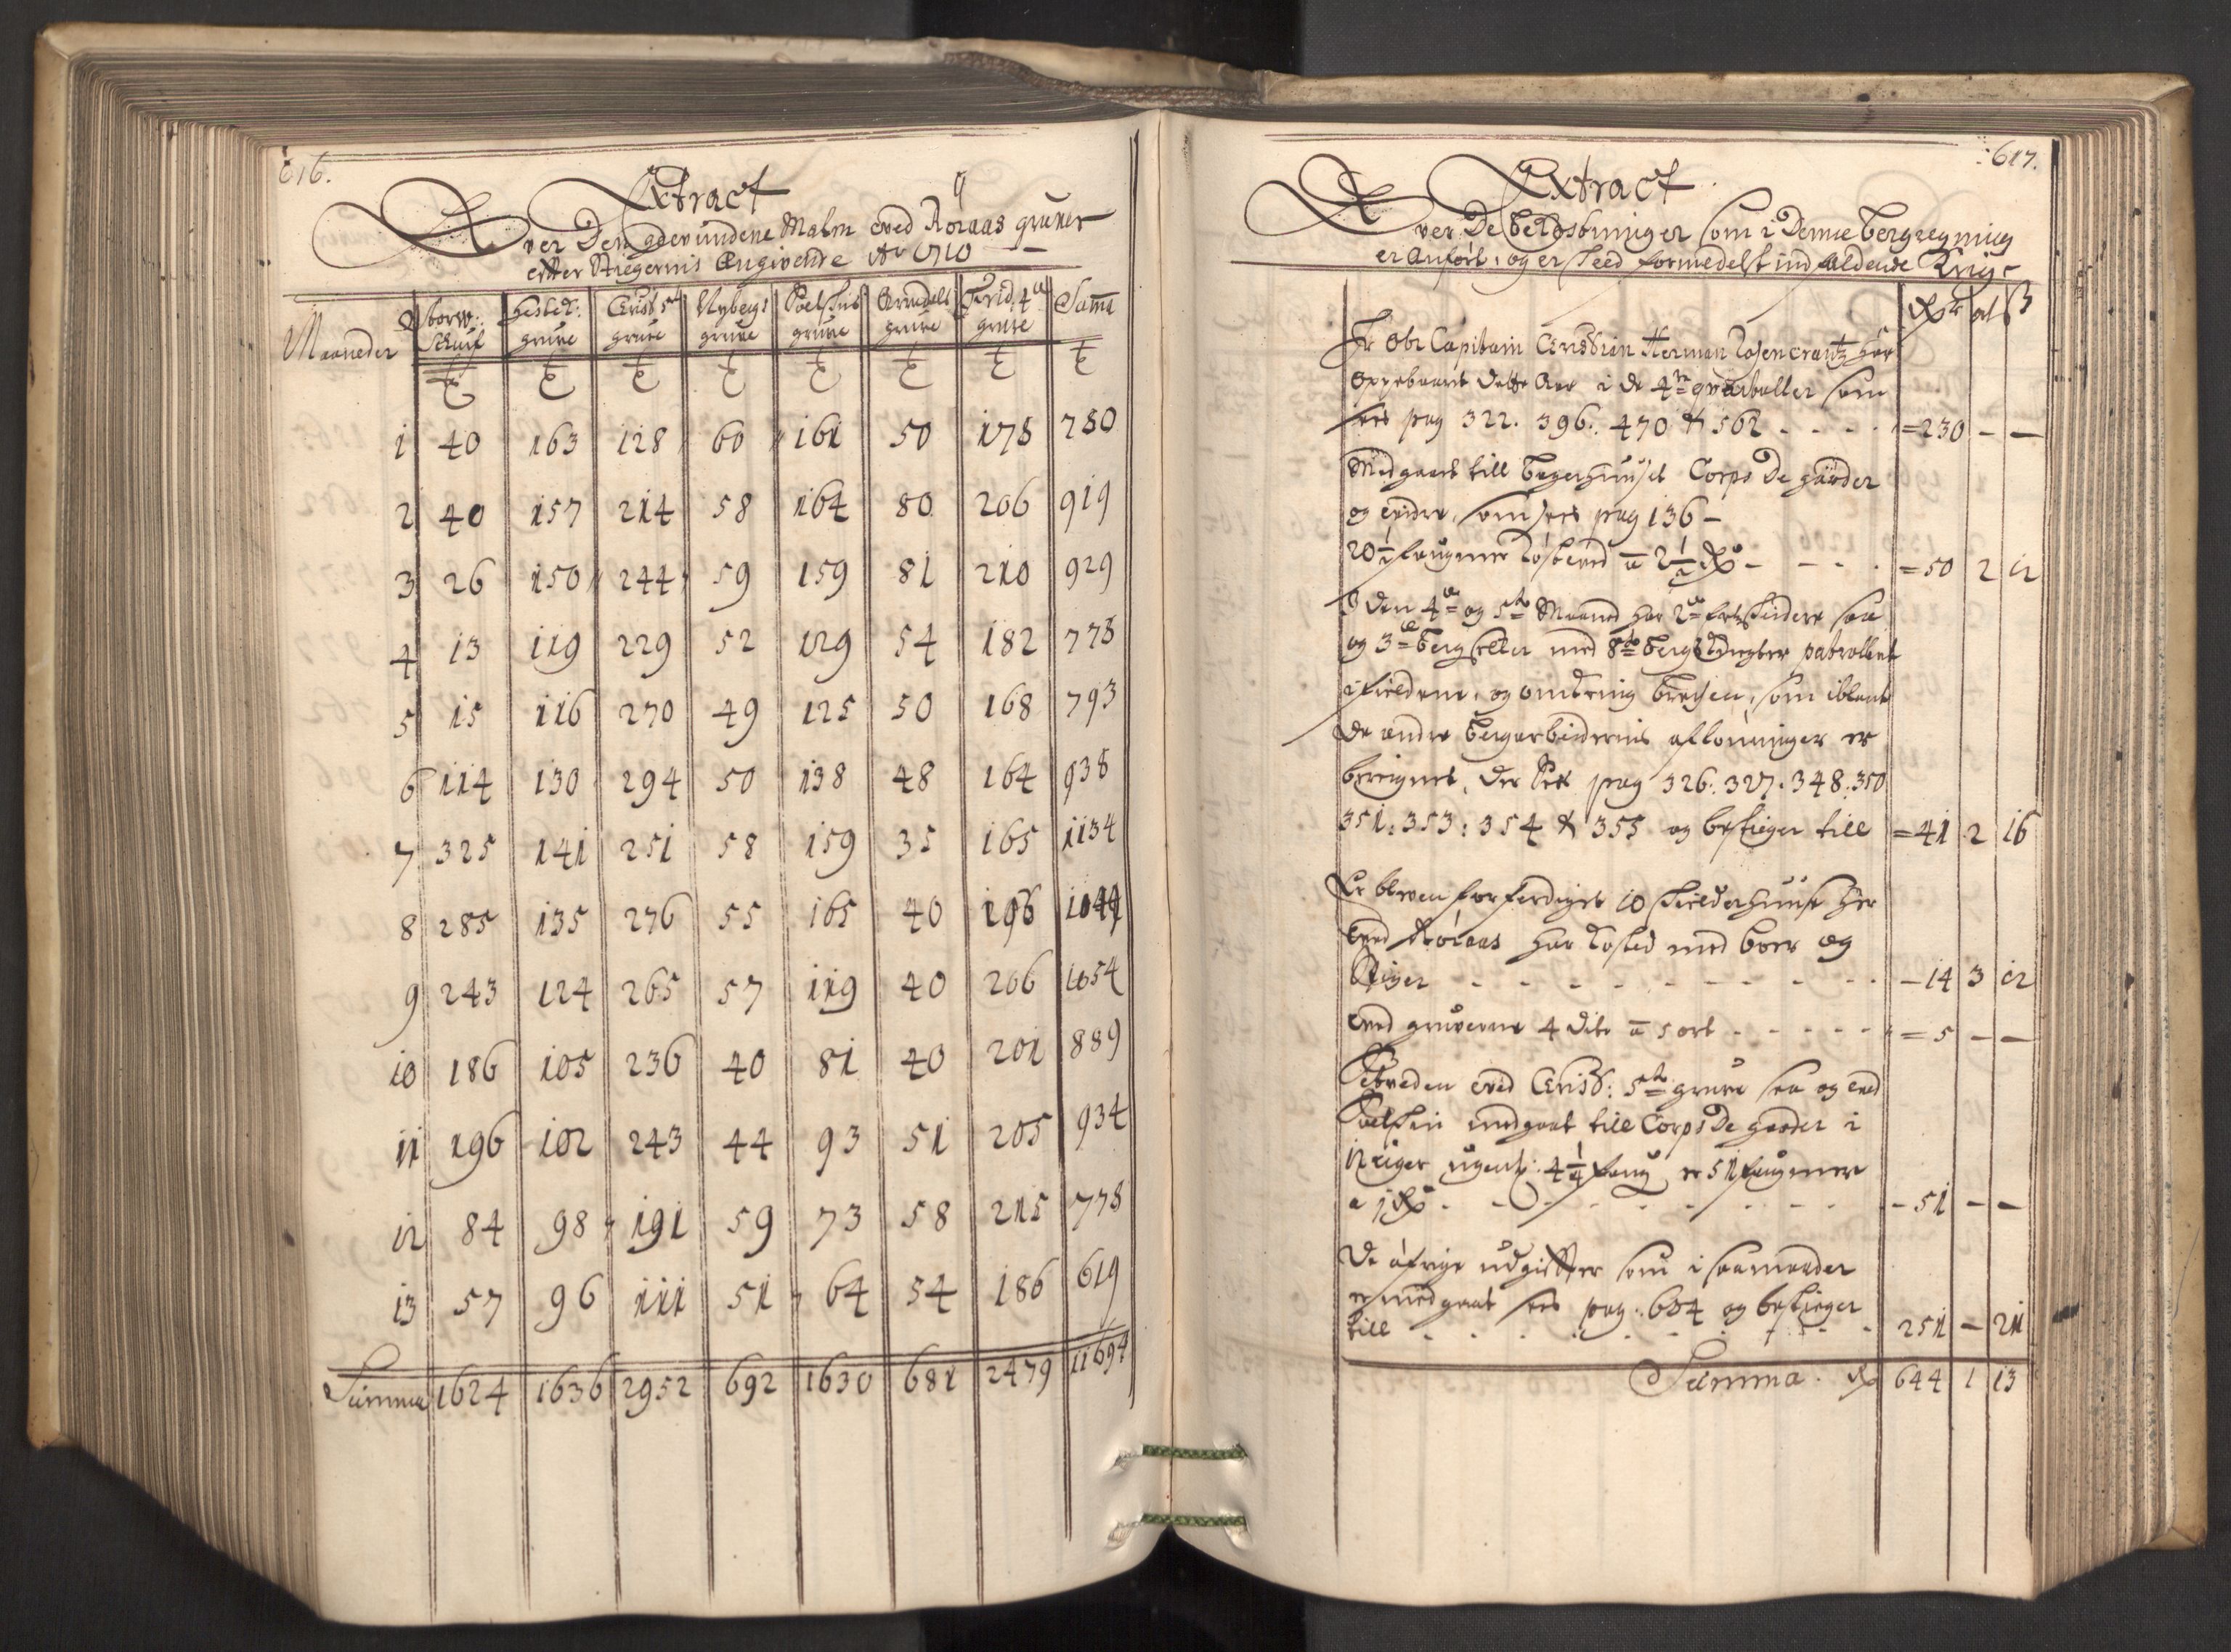 616.
Extract
Over Den gdevundene Malm wed Röraas gruver
effter Stiegernis Angivende Ao 1710
Maaneder | Storw: Schurf | Hested: grube | Christ 5ti grube | Nybergs grube | Soelskins grube | Arvedals grube | Frid: 4ti grube | Summa
1 40 163 128 60 161 50 178 780
2 40 157 214 58 164 80 206 919
3 26 150 244 59 159 81 210 929
4 13 119 229 52 129 54 182 778
5 15 116 270 49 125 50 168 793
6 114 130 294 50 138 48 164 938
7 325 141 251 58 159 35 165 1134
8 285 135 276 55 165 40 196 1044
9 243 124 265 57 119 40 206 1054
10 186 105 236 40 81 40 201 889
11 196 102 243 44 93 51 205 934
12 84 98 191 59 73 58 215 778
13 57 96 111 51 64 54 186 619
Summa 1624 1636 2952 692 1630 681 2479 11694
617.
Extract
Over De bekostninger som i Denne bergregning
er Anfört, og er skeed formedelst indfaldende Krige
Rdr ort ß
Hr Obr Capitain Christian Herman Rosencrantz har
oppebaaret dette Aar i de 4re qvartaller som
sees pag 322. 396. 470 & 562 - - - - =230 - -
Medgaaet till Corps De gärder
og widre, som sees pag 136 -
20 1/4 faugner Röstwed a 2 1/2 Rdr - - - - =50 2 12
I Den 4de og 5te Maaned har 2de saa
og 3de berg med 8te berg patrollert
i fieldene, og omkring som iblant
de andre bergarbeidernis aflönninger er
beregnet, der sees pag 326. 327. 348. 350
351: 353: 354 & 355 og bestiger till =41 2 16
Er bleven forferdiget 10 skielderhuuse her
wed Röraas har kosted med boer og
Spiger - - - - - - - - - -14 3 12
wed gruverne 4 dito a 5 ort - - - - - =5 - -
Setveden wed Christ: 5te grube saa og wed
Soelskin medgaaet till Corps De garder i
12 uger ugentl: 4 1/4 faug er 51 faugner
a 1 Rdr - - - - - - - - -51 - -
De öfrige udgiffter som i samaader
er medgaaet sees pag: 604 og bestiger
till - - - - - - - - 251 - 21
Summa Rdr 644 1 13